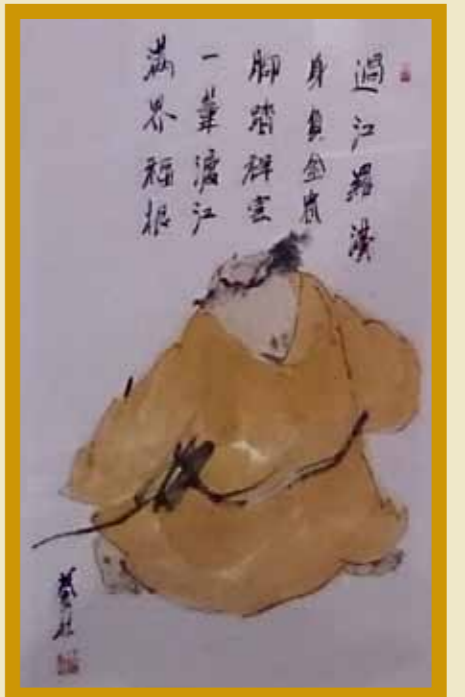 過江羅漢
身負金
脚踏祥雲
一葦渡江
滿界